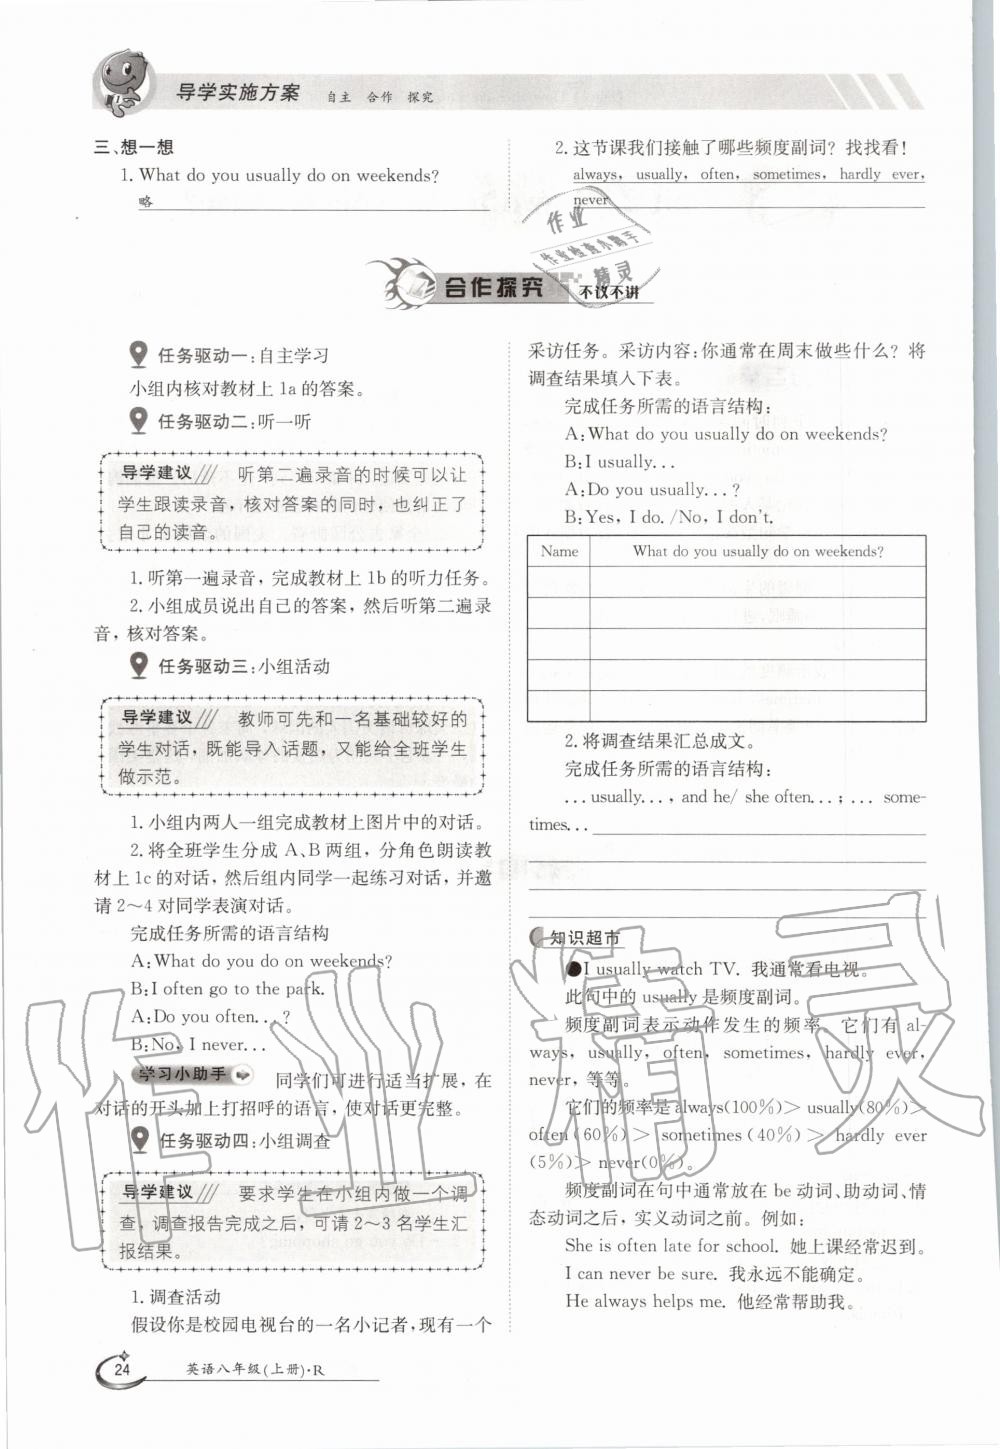 导学实施方案 自主 合作 探究
三、想一想
1. What do you usually do on weekends?
略
2. 这节课我们接触了哪些频度副词？找找看！
always, usually, often, sometimes, hardly ever,
never
作业
作业检查小助手
精灵
合作探究 不议不讲
任务驱动一:自主学习
小组内核对教材上 1a 的答案。
任务驱动二:听一听
导学建议 听第二遍录音的时候可以让
学生跟读录音，核对答案的同时，也纠正了
自己的读音。
1. 听第一遍录音，完成教材上 1b 的听力任务。
2. 小组成员说出自己的答案，然后听第二遍录
音，核对答案。
任务驱动三:小组活动
导学建议 教师可先和一名基础较好的
学生对话，既能导入话题，又能给全班学生
做示范。
1. 小组内两人一组完成教材上图片中的对话。
2. 将全班学生分成 A、B 两组，分角色朗读教
材上 1c 的对话，然后组内同学一起练习对话，并邀
请 2～4 对同学表演对话。
完成任务所需的语言结构
A:What do you do on weekends?
B:I often go to the park.
A:Do you often...?
B:No, I never...
学习小助手 同学们可进行适当扩展，在
对话的开头加上打招呼的语言，使对话更完整。
任务驱动四:小组调查
导学建议 要求学生在小组内做一个调
查，调查报告完成之后，可请 2～3 名学生汇
报结果。
1. 调查活动
假设你是校园电视台的一名小记者，现有一个
采访任务。采访内容:你通常在周末做些什么？将
调查结果填入下表。
完成任务所需的语言结构:
A:What do you usually do on weekends?
B:I usually...
A:Do you usually...?
B:Yes, I do. /No, I don't.
Name What do you usually do on weekends?
2. 将调查结果汇总成文。
完成任务所需的语言结构:
...usually..., and he/ she often...; ... some-
times...
知识超市
●I usually watch TV. 我通常看电视。
此句中的 usually 是频度副词。
频度副词表示动作发生的频率，它们有 al-
ways, usually, often, sometimes, hardly ever,
never, 等等。
它们的频率是 always(100%)> usually(80%)>
often (60%) > sometimes (40%) > hardly ever
(5%)> never(0%)。
频度副词在句中通常放在 be 动词、助动词、情
态动词之后，实义动词之前。例如:
She is often late for school. 她上课经常迟到。
I can never be sure. 我永远不能确定。
He always helps me. 他经常帮助我。
24 英语八年级(上册)·R
作业精灵